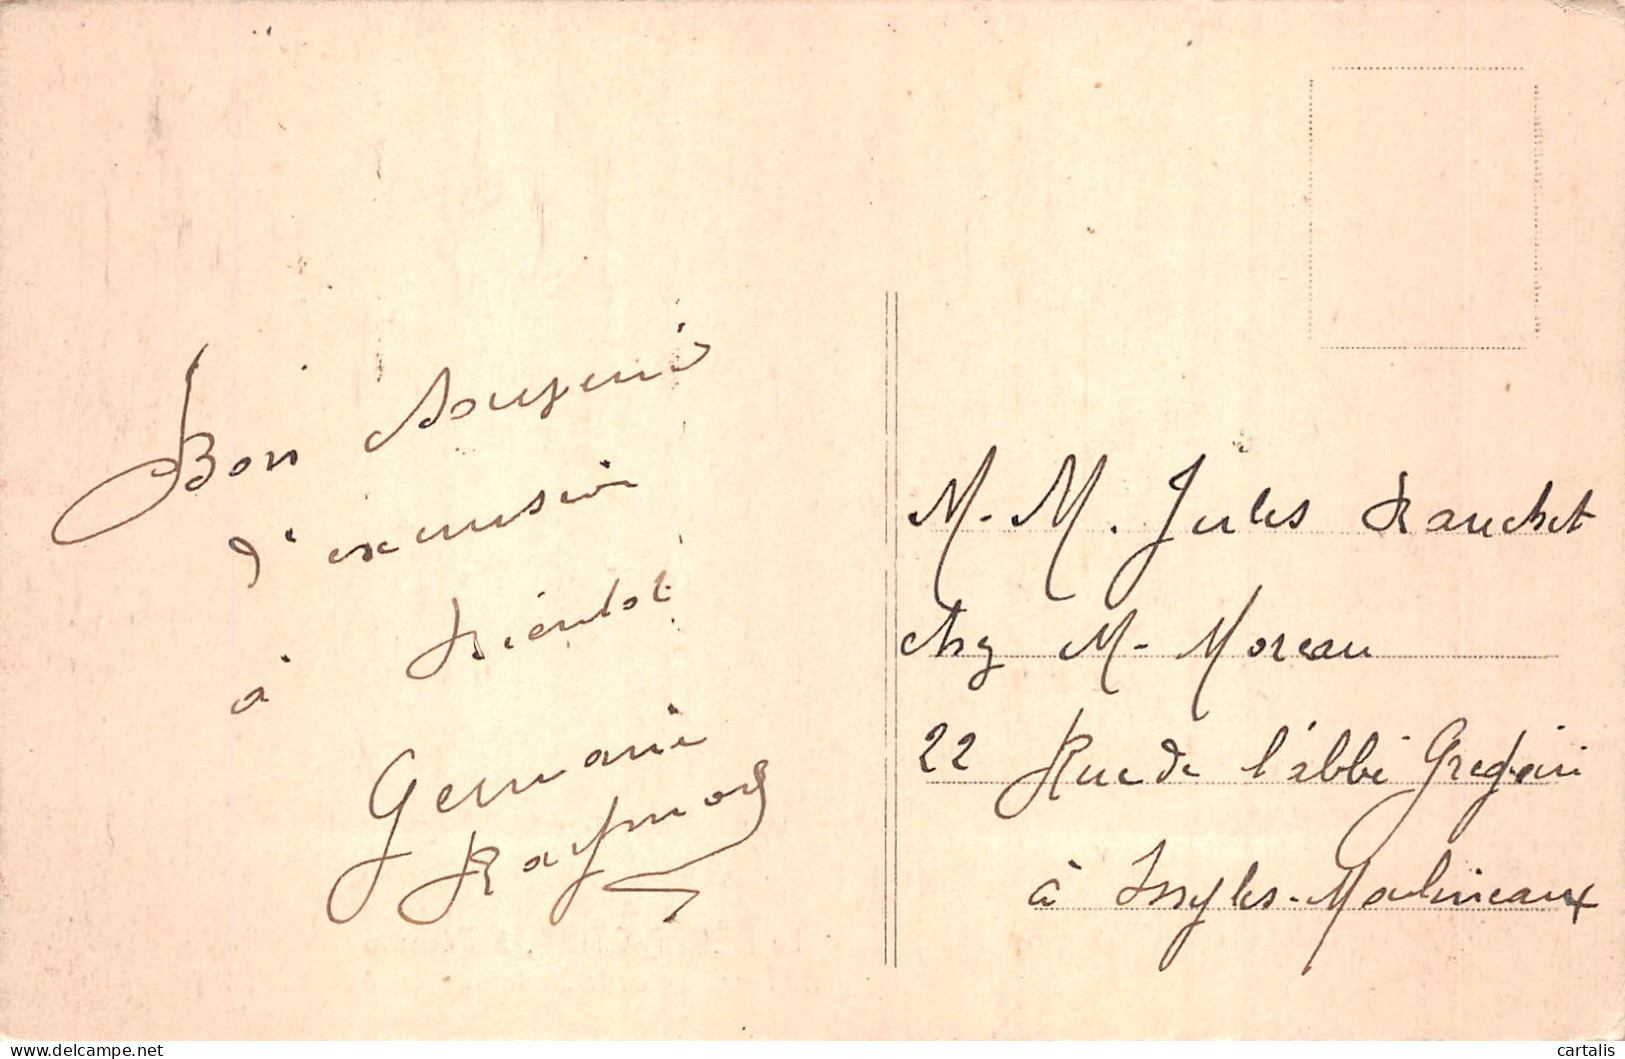 Bon souvenir
d'excursion
à bientôt
Germaine
Raymond
M. M. Jules
chez M. Moreau
22 Rue de l'abbé Grégoire
à Issy les-Moulineaux
www.delcampe.net
cartalis